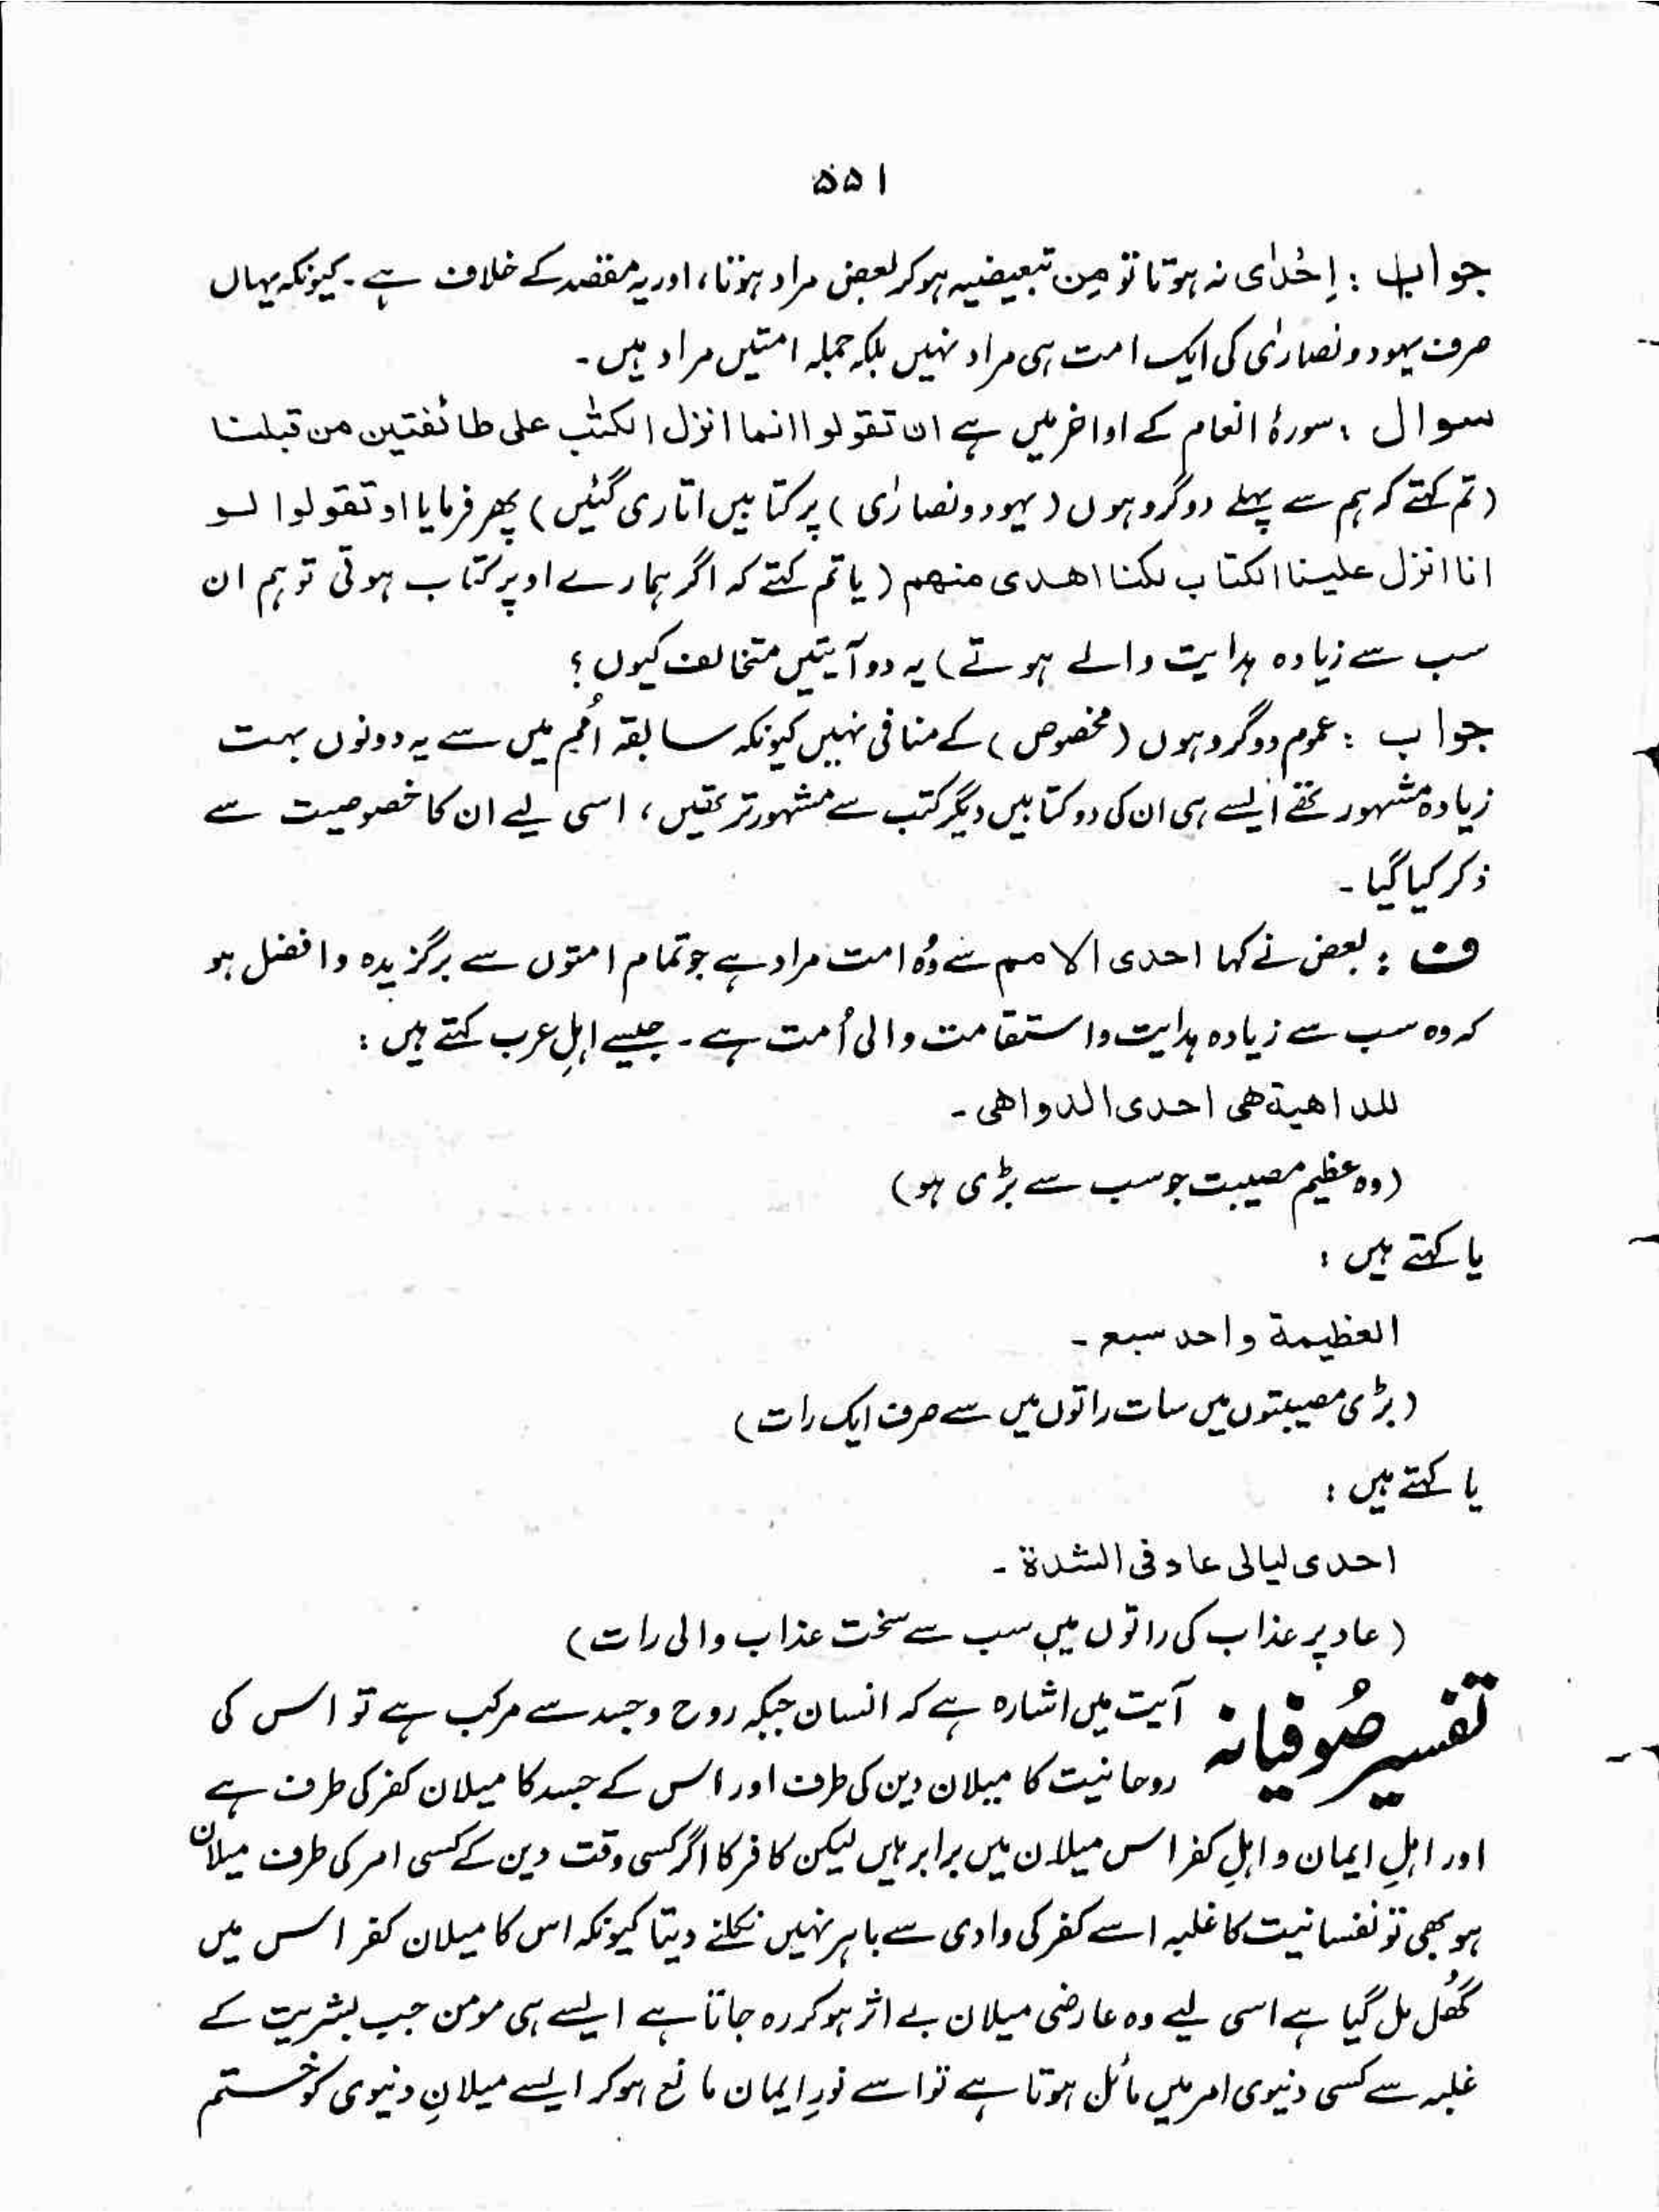 ۵۵۱
جواب : اِحْدٰی نہ ہوتا تو مِن تبعیضیہ ہو کر بعض مراد ہوتا، اور یہ مقصد کے خلاف ہے ۔ کیونکہ یہاں
صرف یہود و نصارٰی کی ایک امت ہی مراد نہیں بلکہ جملہ امتیں مراد ہیں ۔
سوال : سورۂ انعام کے اواخر میں ہے ان تقولوا انما انزل الکتٰب علی طائفتین من قبلنا
( تم کہتے کہ ہم سے پہلے دو گروہوں ( یہود و نصارٰی ) پر کتابیں اتاری گئیں ) پھر فرمایا او تقولوا لو
انا انزل علینا الکتاب لکنا اھدی منھم ( یا تم کہتے کہ اگر ہمارے اوپر کتاب ہوتی تو ہم ان
سب سے زیادہ ہدایت والے ہوتے ) یہ دو آیتیں متخالف کیوں ؟
جواب : عموم دو گروہوں ( مخصوص ) کے منافی نہیں کیونکہ سابقہ اُمم میں سے یہ دونوں بہت
زیادہ مشہور تھے ایسے ہی ان کی دو کتابیں دیگر کتب سے مشہور تر تھیں ، اسی لیے ان کا خصوصیت سے
ذکر کیا گیا ۔
ف : بعض نے کہا احدی الامم سے وُہ امت مراد ہے جو تمام امتوں سے برگزیدہ و افضل ہو
کہ وہ سب سے زیادہ ہدایت و استقامت والی اُمت ہے ۔ جیسے اہلِ عرب کہتے ہیں :
للداھیة ھی احدی الدواھی ۔
( وہ عظیم مصیبت جو سب سے بڑی ہو )
یا کہتے ہیں :
العظیمة واحد سبع ۔
( بڑی مصیبتوں میں سات راتوں میں سے صرف ایک رات )
یا کہتے ہیں :
احدی لیالی عاد فی الشدة ۔
( عاد پر عذاب کی راتوں میں سب سے سخت عذاب والی رات )
تفسیر صُوفیانہ آیت میں اشارہ ہے کہ انسان جبکہ روح و جسد سے مرکب ہے تو اس کی
روحانیت کا میلان دین کی طرف اور اس کے جسد کا میلان کفر کی طرف ہے
اور اہلِ ایمان و اہلِ کفر اس میلان میں برابر ہیں لیکن کافر کا اگر کسی وقت دین کے کسی امر کی طرف میلان
ہو بھی تو نفسانیت کا غلبہ اسے کفر کی وادی سے باہر نہیں نکلنے دیتا کیونکہ اس کا میلان کفر اس میں
گُھل مل گیا ہے اسی لیے وہ عارضی میلان بے اثر ہو کر رہ جاتا ہے ایسے ہی مومن جب بشریت کے
غلبہ سے کسی دنیوی امر میں مائل ہوتا ہے تو اسے نورِ ایمان مانع ہو کر ایسے میلانِ دنیوی کو ختم